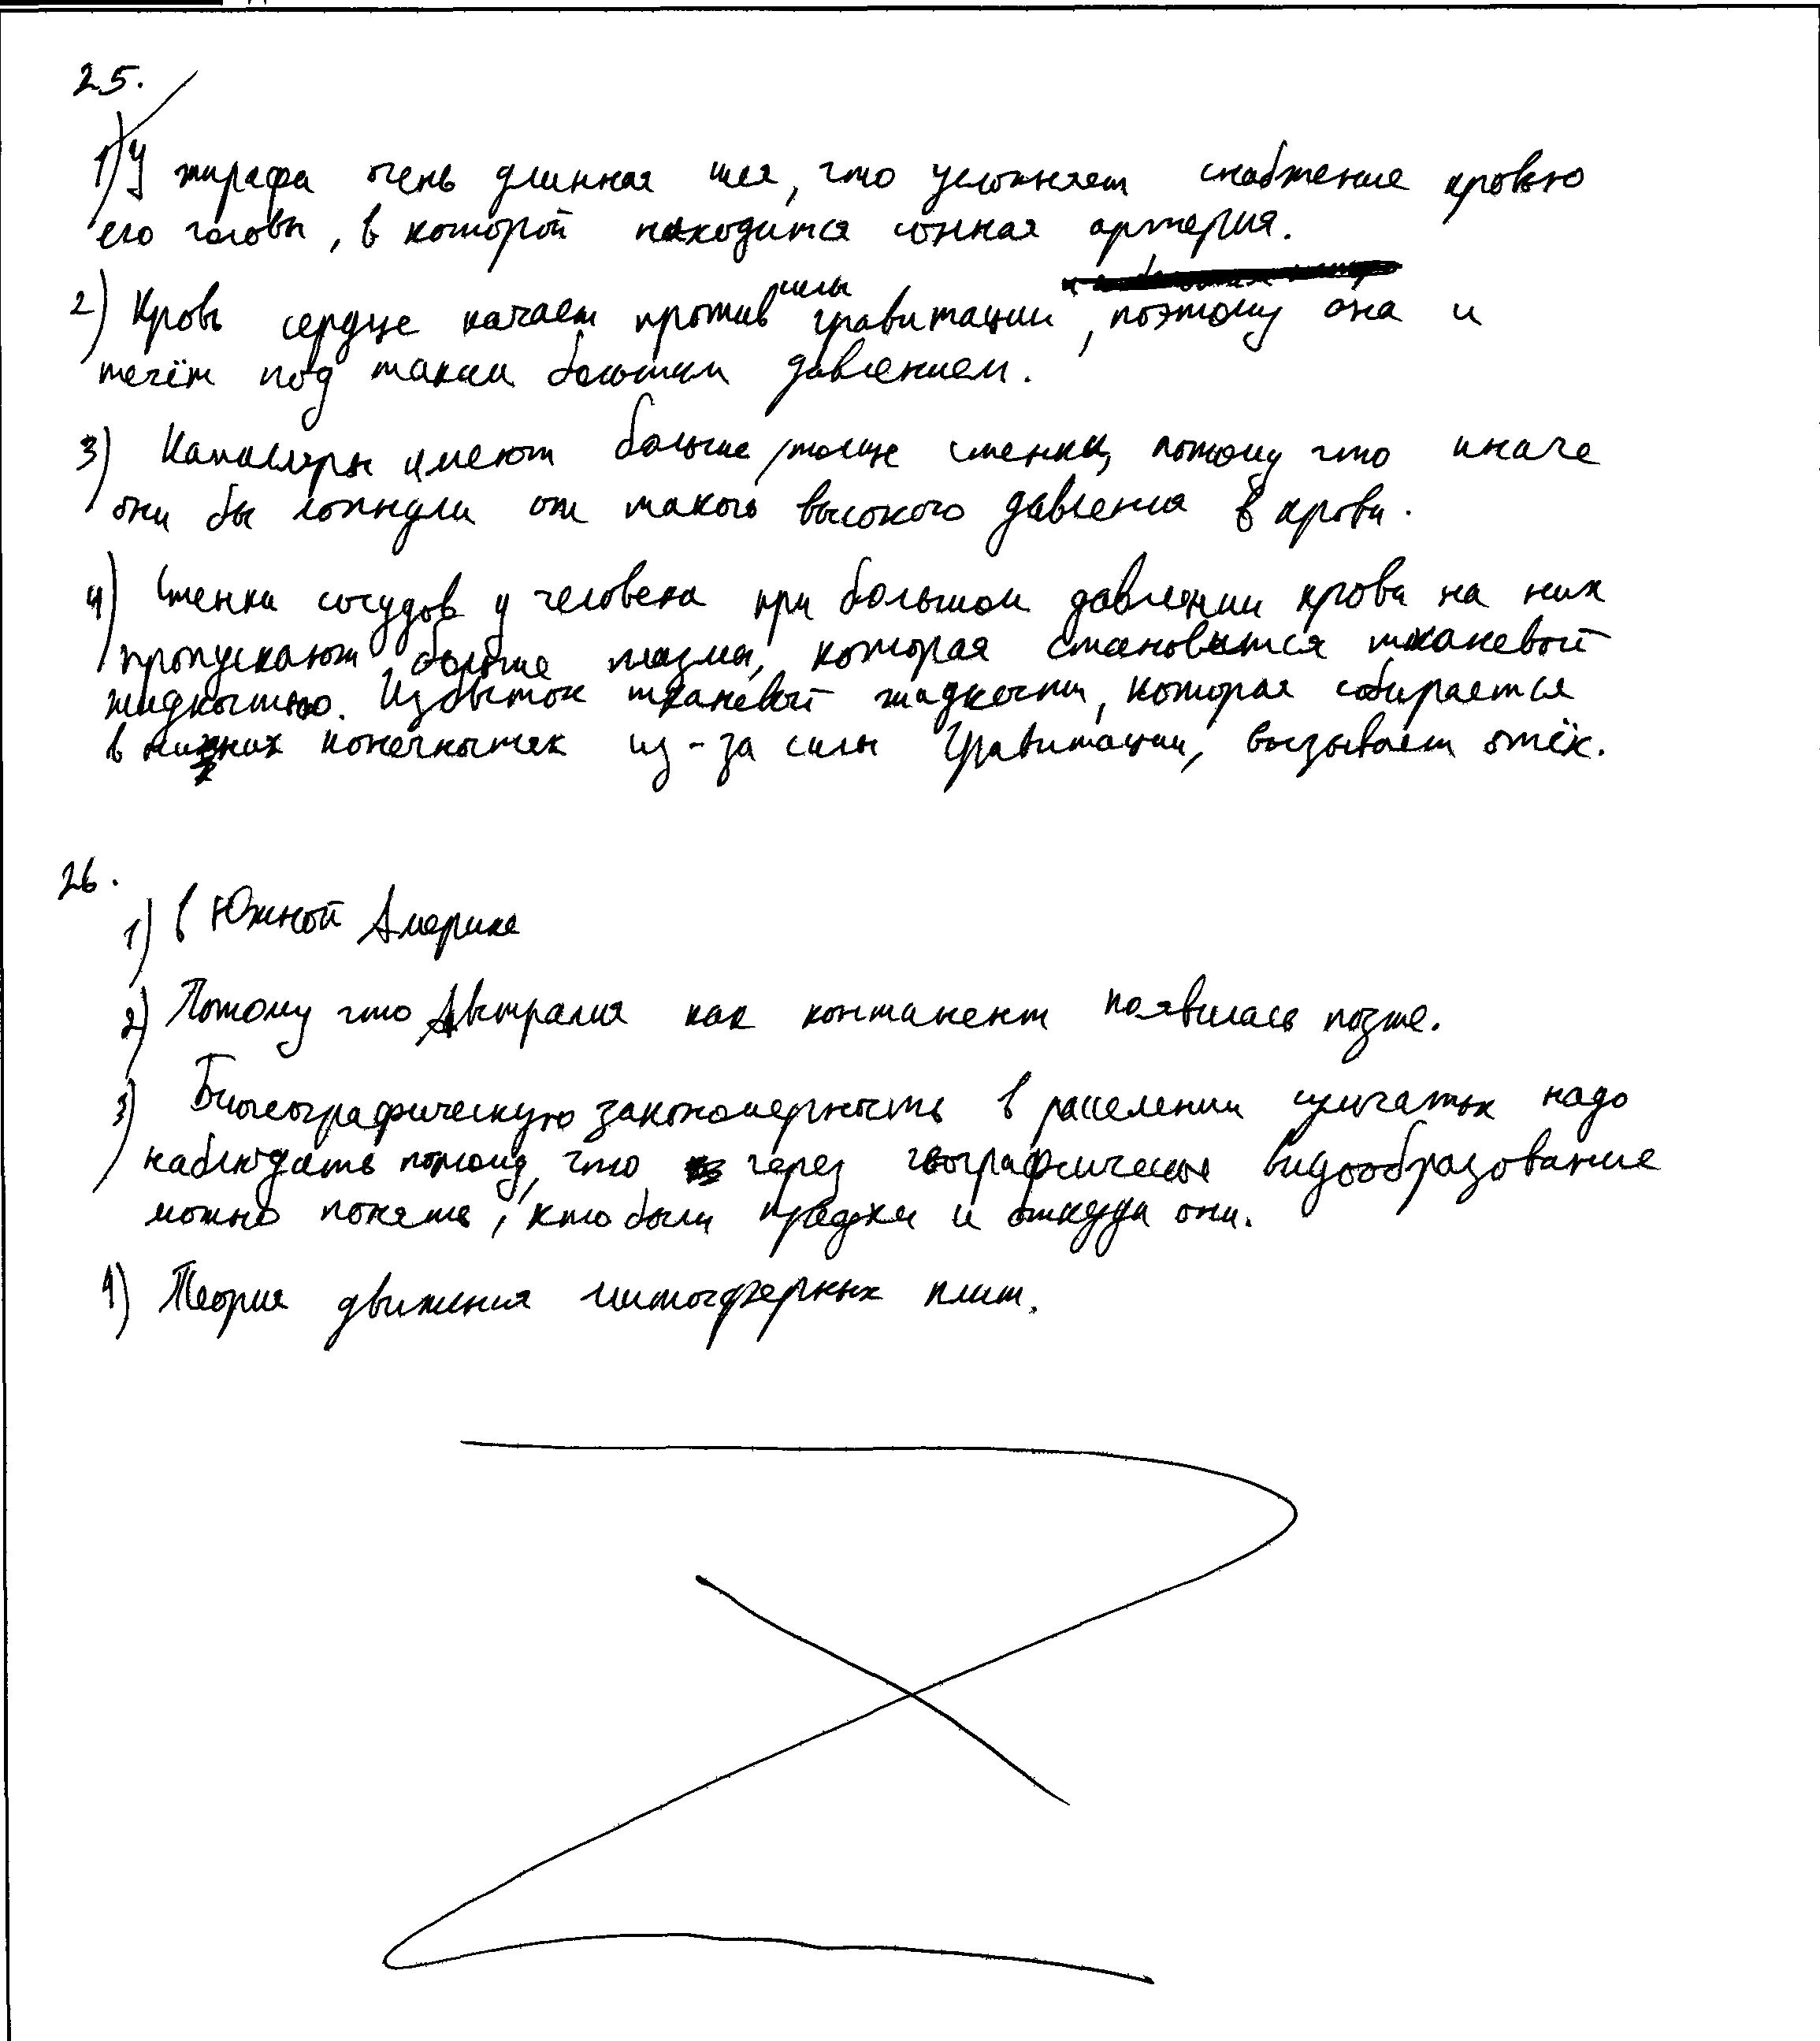 25.
1) У жирафа очень длинная шея, что усложняет снабжение кровью
его головы, в которой находится сонная артерия.
2) Кровь сердце качает против силы гравитации, поэтому она и
течёт под таким большим давлением.
3) Капилляры имеют больше/толще стенки, потому что иначе
они бы лопнули от такого высокого давления в крови.
4) Стенки сосудов у человека при большом давлении крови на них
пропускают больше плазмы, которая становится тканевой
жидкостью. Избыток тканевой жидкости, которая собирается
в нижних конечностях из-за силы гравитации, вызывает отёк.
26.
1) в Южной Америке
2) Потому что Австралия как континент появилась позже.
3) Биогеографическую закономерность в расселении сумчатых надо
наблюдать потому, что через географическое видообразование
можно понять, кто были предки и откуда они.
4) Теория движения литосферных плит.